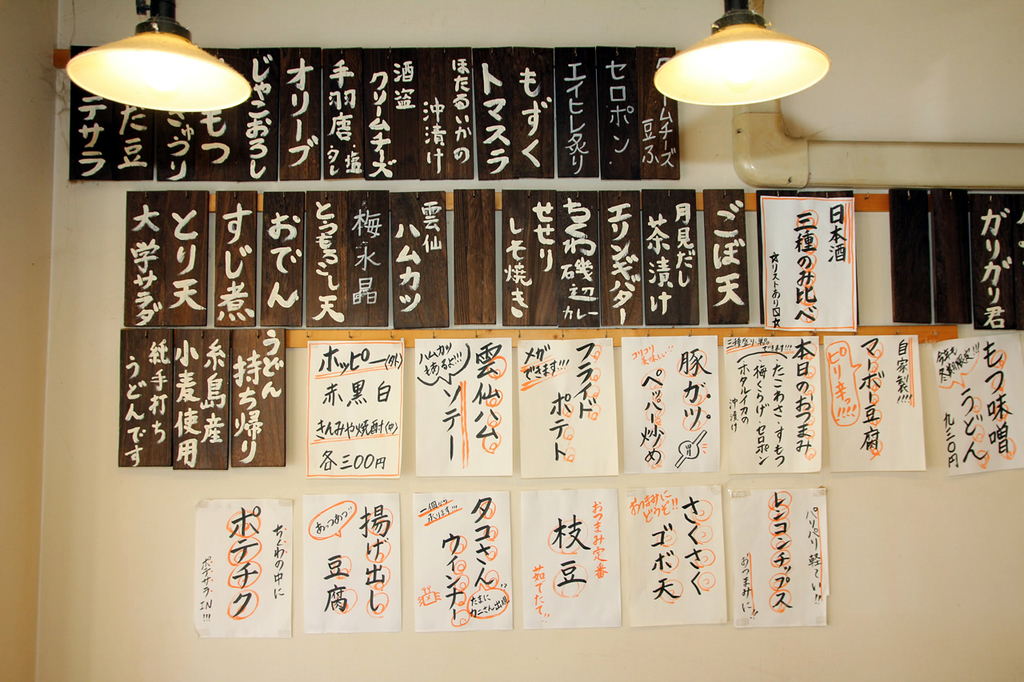 クリームチーズ
豆ふ
セロポン
エイヒレ炙り
もずく
トマスラ
ほたるいかの
沖漬け
酒盗
クリームチーズ
手羽唐 塩・タレ
オリーブ
じゃこおろし
もつ
きゅうり
た豆
テサラ
ガリガリ君
日本酒
三種のみ比べ
☆リストあり〼☆
ごぼ天
月見だし
茶漬け
エリンギバター
ちくわ磯辺カレー
せせり
しそ焼き
雲仙
ハムカツ
梅水晶
とうもろこし天
おでん
すじ煮
とり天
大学サラダ
うどん
持ち帰り
糸島産
小麦使用
純手打ち
うどんです
もつ味噌
うどん
九三〇円
自家製!!!
マーボー豆腐
ピリ辛っ!!!!
本日のおつまみ
たこわさ・すもつ
梅くらげ・セロポン
ホタルイカの
沖漬け
豚ガツ。
ペッパー炒め
コリコリ
美味しい!!
胃
フライド
ポテト
メガ
できます!!!
雲仙ハム
ソテー
ハムカツ
もあるよ!!!
ホッピー(外)
赤黒白
きんみや焼酎(中)
各三〇〇円
パリパリ軽~い!!
レンコンチップス
おつまみに!!
さくさく
ゴボ天
おつまみに
どうぞ!!
おつまみ定番
枝豆
茹でたて
タコさん
ウインナー
たまに
カニさん出現
揚げ出し
豆腐
あっつあつ
ちくわの中に
ポテチク
ポテサラIN!!!